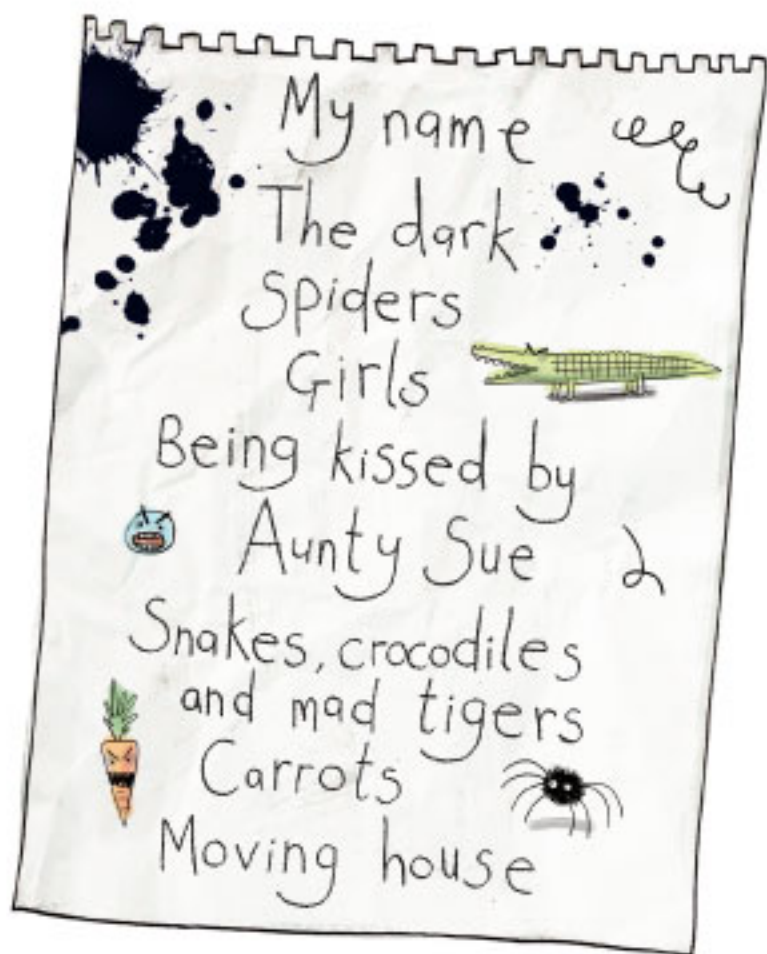 My name
The dark
Spiders
Girls
Being kissed by
Aunty Sue
Snakes, crocodiles
and mad tigers
Carrots
Moving house